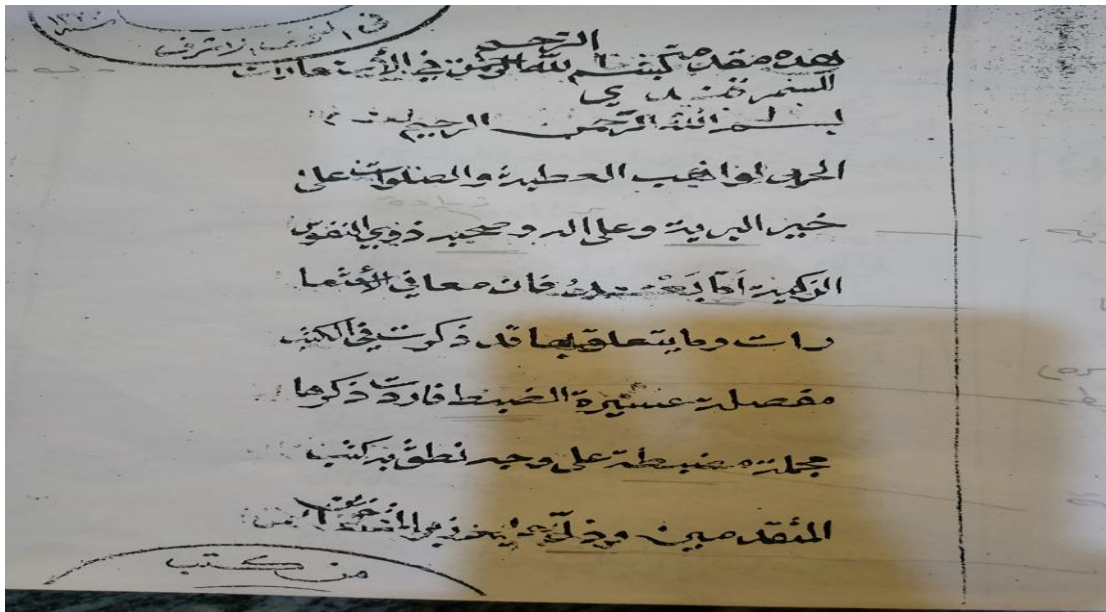 سنة ١٣٧٠
في النجف الاشرف
الرحيم
هذه مقدمة كبسم الله الرحمن في الأستعارات
السمرقندي
بسم الله الرحمن الرحيم
الحمد لواهب العطية والصلوات على
خير البرية وعلى اله وصحبه ذوي النفوس
الزكية اما بعد فان معاني الأستعا
رات وما يتعلق بها قد ذكرت في الكتب
مفصلة عسيرة الضبط فاردت ذكرها
مجملة مضبطة على وجه نطق به كتب
المتقدمين
من كتب